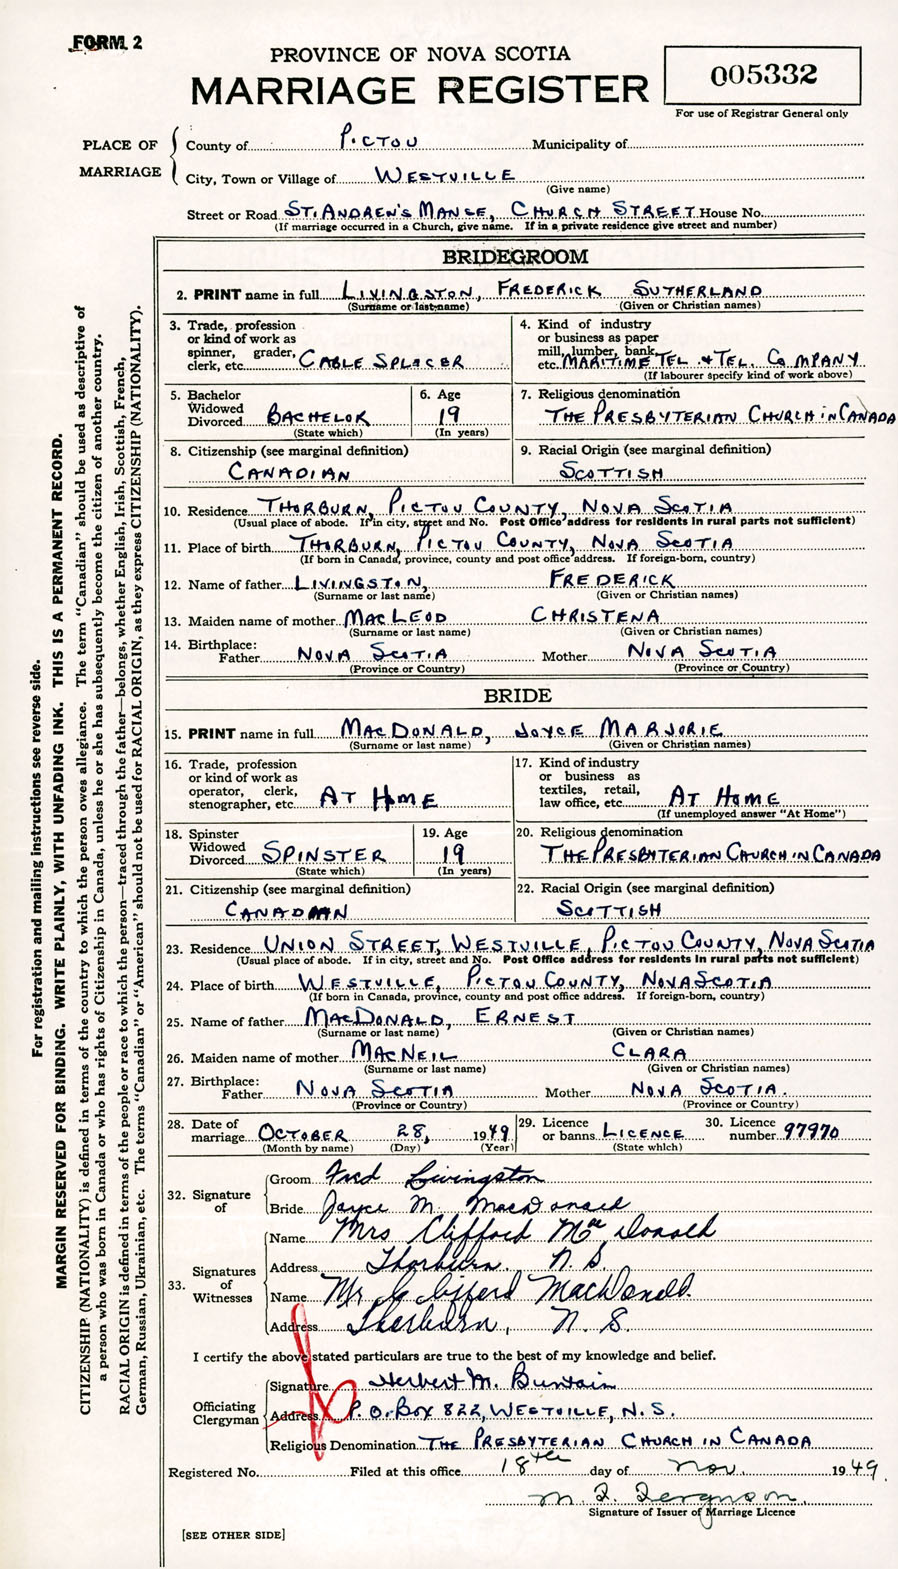 FORM 2
PROVINCE OF NOVA SCOTIA
MARRIAGE REGISTER
005332
For use of Registrar General only
PLACE OF MARRIAGE
County of PICTOU Municipality of
City, Town or Village of WESTVILLE
(Give name)
Street or Road ST. ANDREN'S MANSE, CHURCH STREET House No.
(If marriage occurred in a Church, give name. If in a private residence give street and number)
BRIDEGROOM
2. PRINT name in full LIVINGSTON, FREDERICK SUTHERLAND
(Surname or last name) (Given or Christian names)
3. Trade, profession or kind of work as spinner, grader, clerk, etc. CABLE SPLACER
4. Kind of industry or business as paper mill, lumber, bank, etc. MARITIME TEL. & TEL. COMPANY
(If labourer specify kind of work above)
5. Bachelor Widowed Divorced BACHELOR
(State which)
6. Age 19
(In years)
7. Religious denomination
THE PRESBYTERIAN CHURCH IN CANADA
8. Citizenship (see marginal definition)
CANADIAN
9. Racial Origin (see marginal definition)
SCOTTISH
10. Residence THORBURN, PICTOU COUNTY, NOVA SCOTIA
(Usual place of abode. If in city, street and No. Post Office address for residents in rural parts not sufficient)
11. Place of birth THORBURN, PICTOU COUNTY, NOVA SCOTIA
(If born in Canada, province, county and post office address. If foreign-born, country)
12. Name of father LIVINGSTON, FREDERICK
(Surname or last name) (Given or Christian names)
13. Maiden name of mother MACLEOD CHRISTENA
(Surname or last name) (Given or Christian names)
14. Birthplace:
Father NOVA SCOTIA Mother NOVA SCOTIA
(Province or Country) (Province or Country)
BRIDE
15. PRINT name in full MACDONALD, JOYCE MARJORIE
(Surname or last name) (Given or Christian names)
16. Trade, profession or kind of work as operator, clerk, stenographer, etc. AT HOME
17. Kind of industry or business as textiles, retail, law office, etc. AT HOME
(If unemployed answer "At Home")
18. Spinster Widowed Divorced SPINSTER
(State which)
19. Age 19
(In years)
20. Religious denomination
THE PRESBYTERIAN CHURCH IN CANADA
21. Citizenship (see marginal definition)
CANADIAN
22. Racial Origin (see marginal definition)
SCOTTISH
23. Residence UNION STREET, WESTVILLE, PICTOU COUNTY, NOVA SCOTIA
(Usual place of abode. If in city, street and No. Post Office address for residents in rural parts not sufficient)
24. Place of birth WESTVILLE, PICTOU COUNTY, NOVA SCOTIA
(If born in Canada, province, county and post office address. If foreign-born, country)
25. Name of father MACDONALD, ERNEST
(Surname or last name) (Given or Christian names)
26. Maiden name of mother MACNEIL CLARA
(Surname or last name) (Given or Christian names)
27. Birthplace:
Father NOVA SCOTIA Mother NOVA SCOTIA.
(Province or Country) (Province or Country)
28. Date of marriage OCTOBER 28, 1949
(Month by name) (Day) (Year)
29. Licence or banns LICENCE
(State which)
30. Licence number 97970
32. Signature of
Groom Fred Livingston
Bride Joyce M. MacDonald
33. Signatures of Witnesses
Name Mrs Clifford MacDonald
Address Thorburn. N. S.
Name Mr Clifford MacDonald.
Address Thorburn, N. S.
I certify the above stated particulars are true to the best of my knowledge and belief.
Officiating Clergyman
Signature Herbert M. Buntain
Address P.O. BOX 822, WESTVILLE, N.S.
Religious Denomination THE PRESBYTERIAN CHURCH IN CANADA
Registered No. Filed at this office 18th day of Nov. 1949.
Ferguson.
Signature of Issuer of Marriage Licence
[SEE OTHER SIDE]
For registration and mailing instructions see reverse side.
MARGIN RESERVED FOR BINDING. WRITE PLAINLY, WITH UNFADING INK. THIS IS A PERMANENT RECORD.
CITIZENSHIP (NATIONALITY) is defined in terms of the country to which the person owes allegiance. The term "Canadian" should be used as descriptive of
a person who was born in Canada or who has rights of Citizenship in Canada, unless he or she has subsequently become the citizen of another country.
RACIAL ORIGIN is defined in terms of the people or race to which the person—traced through the father—belongs, whether English, Irish, Scottish, French,
German, Russian, Ukrainian, etc. The terms "Canadian" or "American" should not be used for RACIAL ORIGIN, as they express CITIZENSHIP (NATIONALITY).